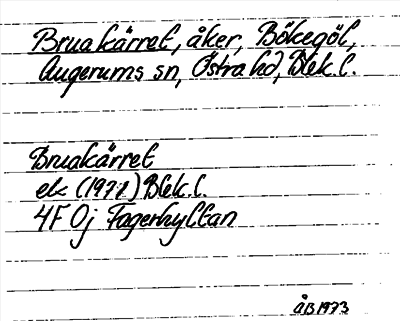 Bruakärret, åker, Bökegöl,
Augerums sn, Östra hd, Blek.l.
Bruakärret
ek (1971) Blek.l.
4F 0j Fagerhyltan
ÅB 1973